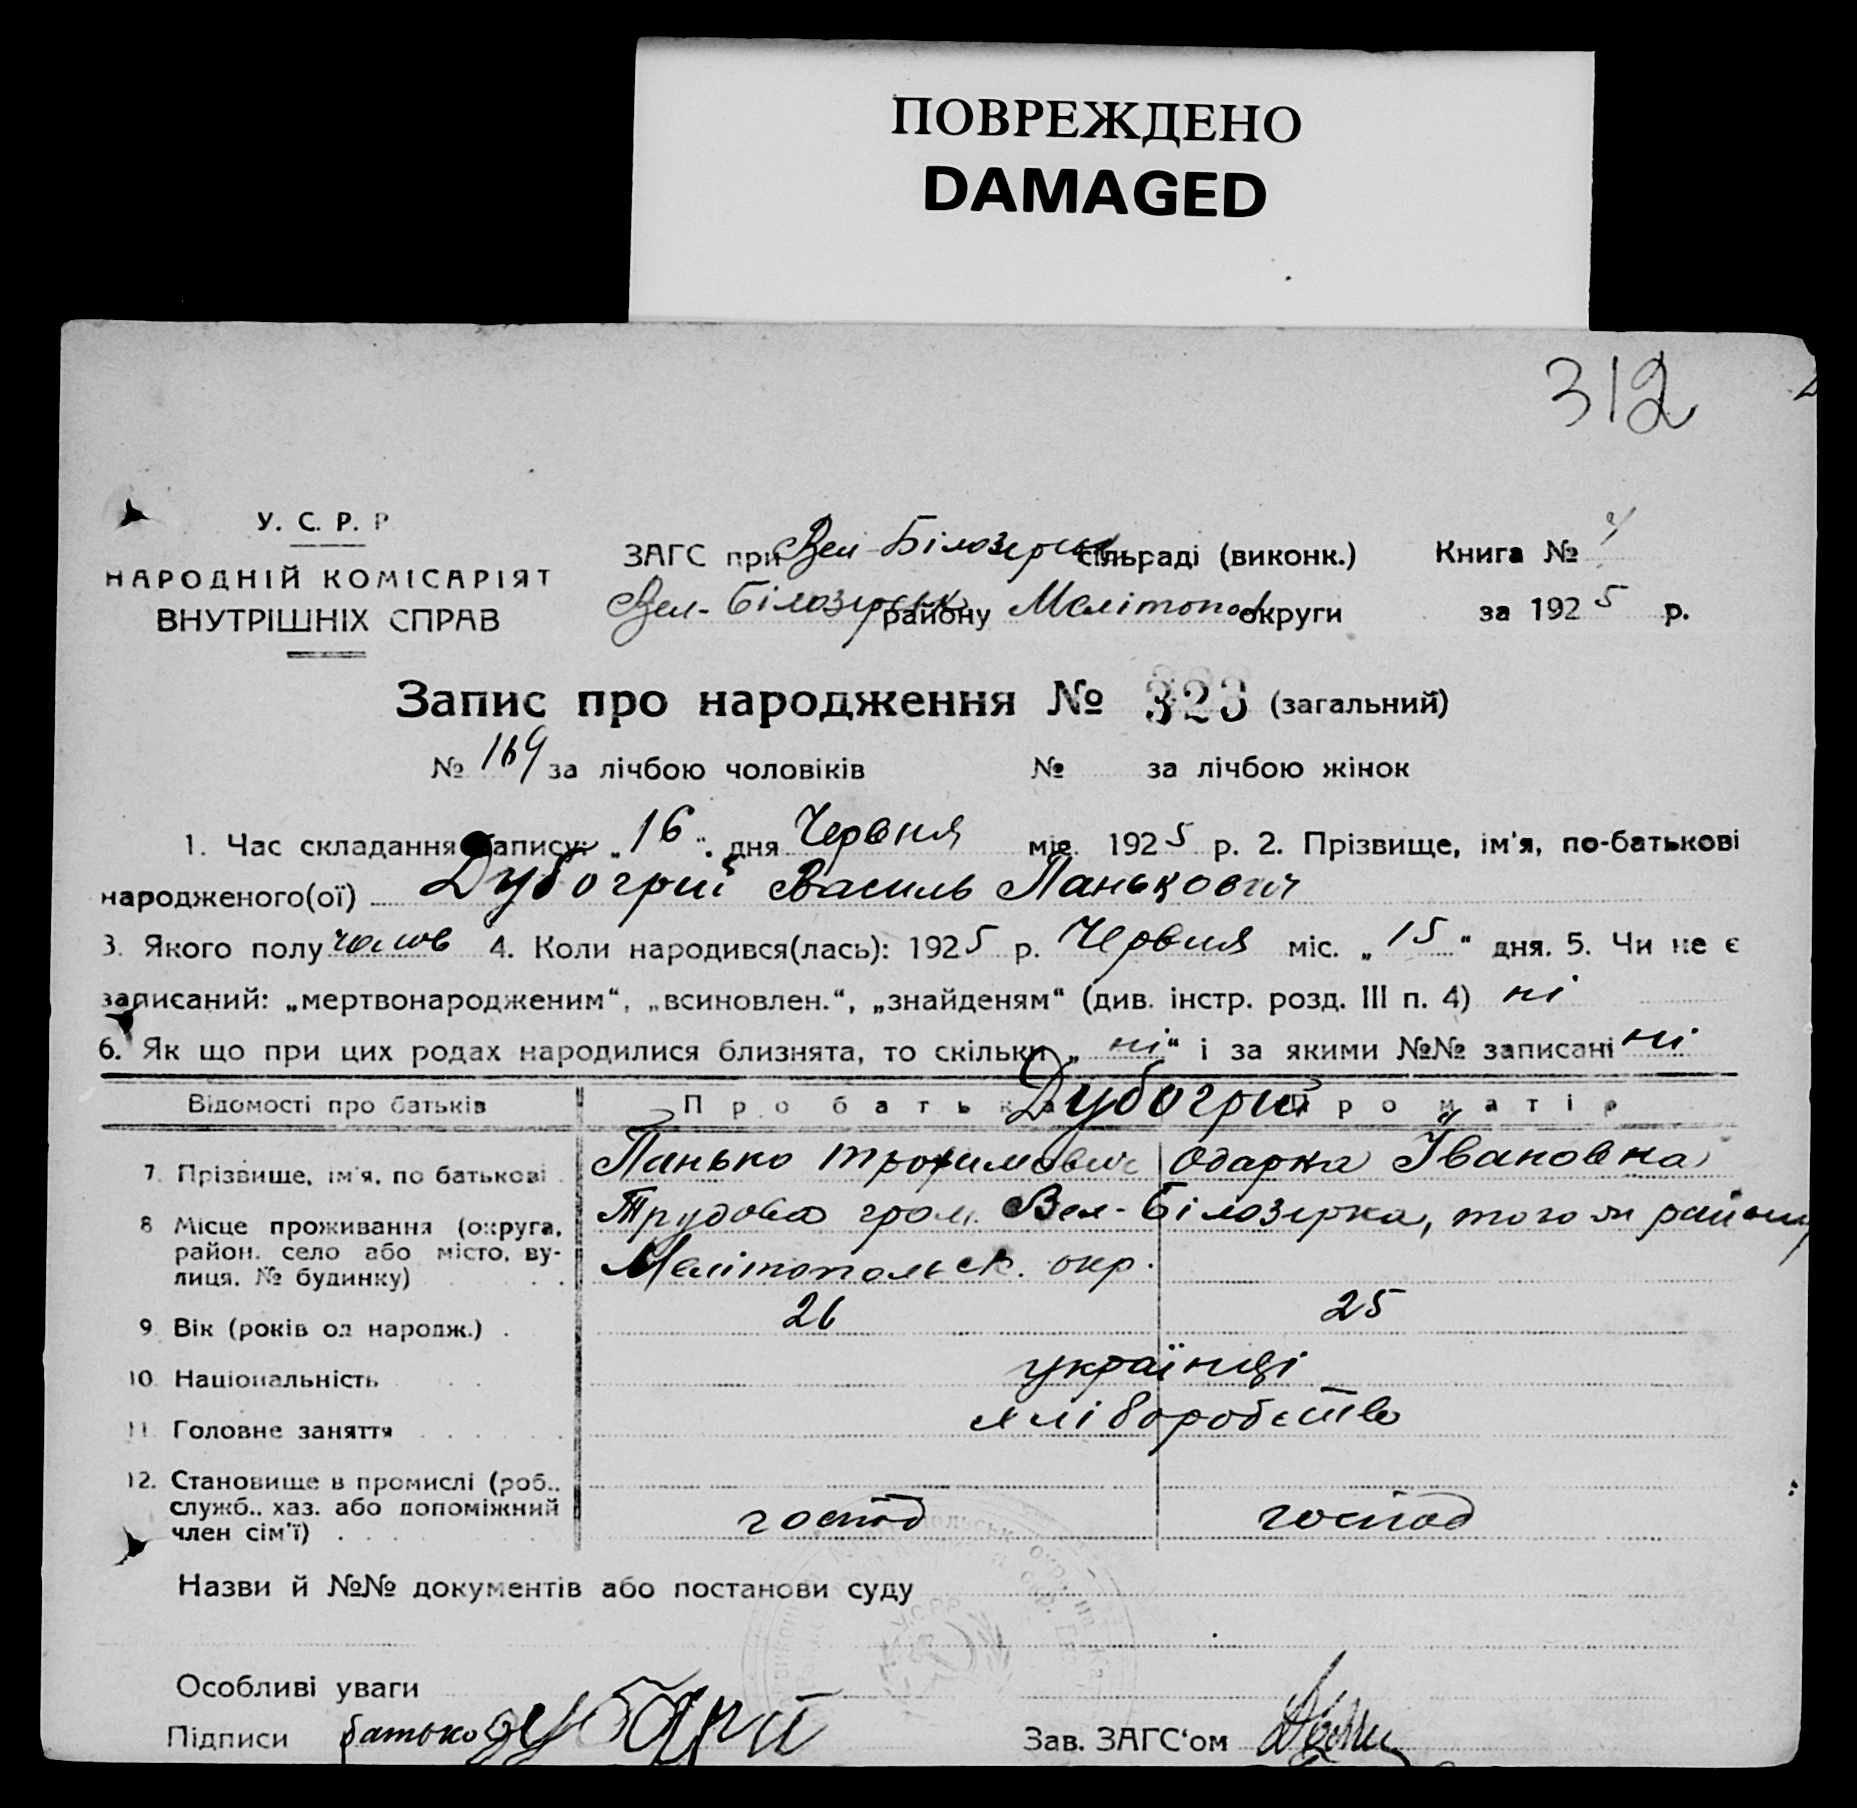 ПОВРЕЖДЕНО
DAMAGED
312
У. С. Р. Р
НАРОДНІЙ КОМІСАРІЯТ
ВНУТРІШНІХ СПРАВ
ЗАГС при Вел-Білозерськ сільраді (виконк.) Книга №
Вел-Білозерськ району Мелітопол округи за 1925 р.
Запис про народження № 323 (загальний)
№ 169 за лічбою чоловіків № за лічбою жінок
1. Час складання запису: „16“. дня Червня міс. 1925 р. 2. Прізвище, ім'я, по-батькові
народженого(ої) Дубогрий Василь Панькович
3. Якого полу чолов 4. Коли народився(лась): 1925 р. Червня міс. „15“ дня. 5. Чи не є
записаний: „мертвонародженим“, „всиновлен.“, „знайденям“ (див. інстр. розд. III п. 4) ні
6. Як що при цих родах народилися близнята, то скільки „ні“ і за якими №№ записані ні
Відомості про батьків Про батька Дубогрий Про матір
7. Прізвище, ім'я, по батькові Панько Трохимович Одарка Івановна
8 Місце проживання (округа, район. село або місто, вулиця. № будинку) Трудова гром. Вел-Білозерка, того ж району
Мелітопольськ. окр.
9 Вік (років од народж.) 26 25
10 Національність українці
11 Головне заняття хліборобство
12. Становище в промислі (роб.. служб.. хаз. або допоміжний член сім'ї) господ господ
Назви й №№ документів або постанови суду
Особливі уваги
Підписи батько Дубогрий Зав. ЗАГС‘ом